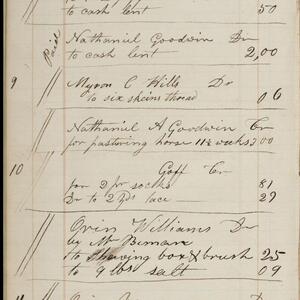 to cash lent 50
Paid
Nathaniel Goodwin Dr
to cash lent 2,00
9
Myron C Wills Dr
to six skeins thread 06
Nathaniel A Goodwin Cr
for pasturing horse 11½ weeks 3 00
10
Goff Cr
for 2 pr socks 81
Dr to 2 yds lace 29
Orin Williams Dr
by Mr Beman
to Shaving box & brush 25
to 9 lbs salt 09
11